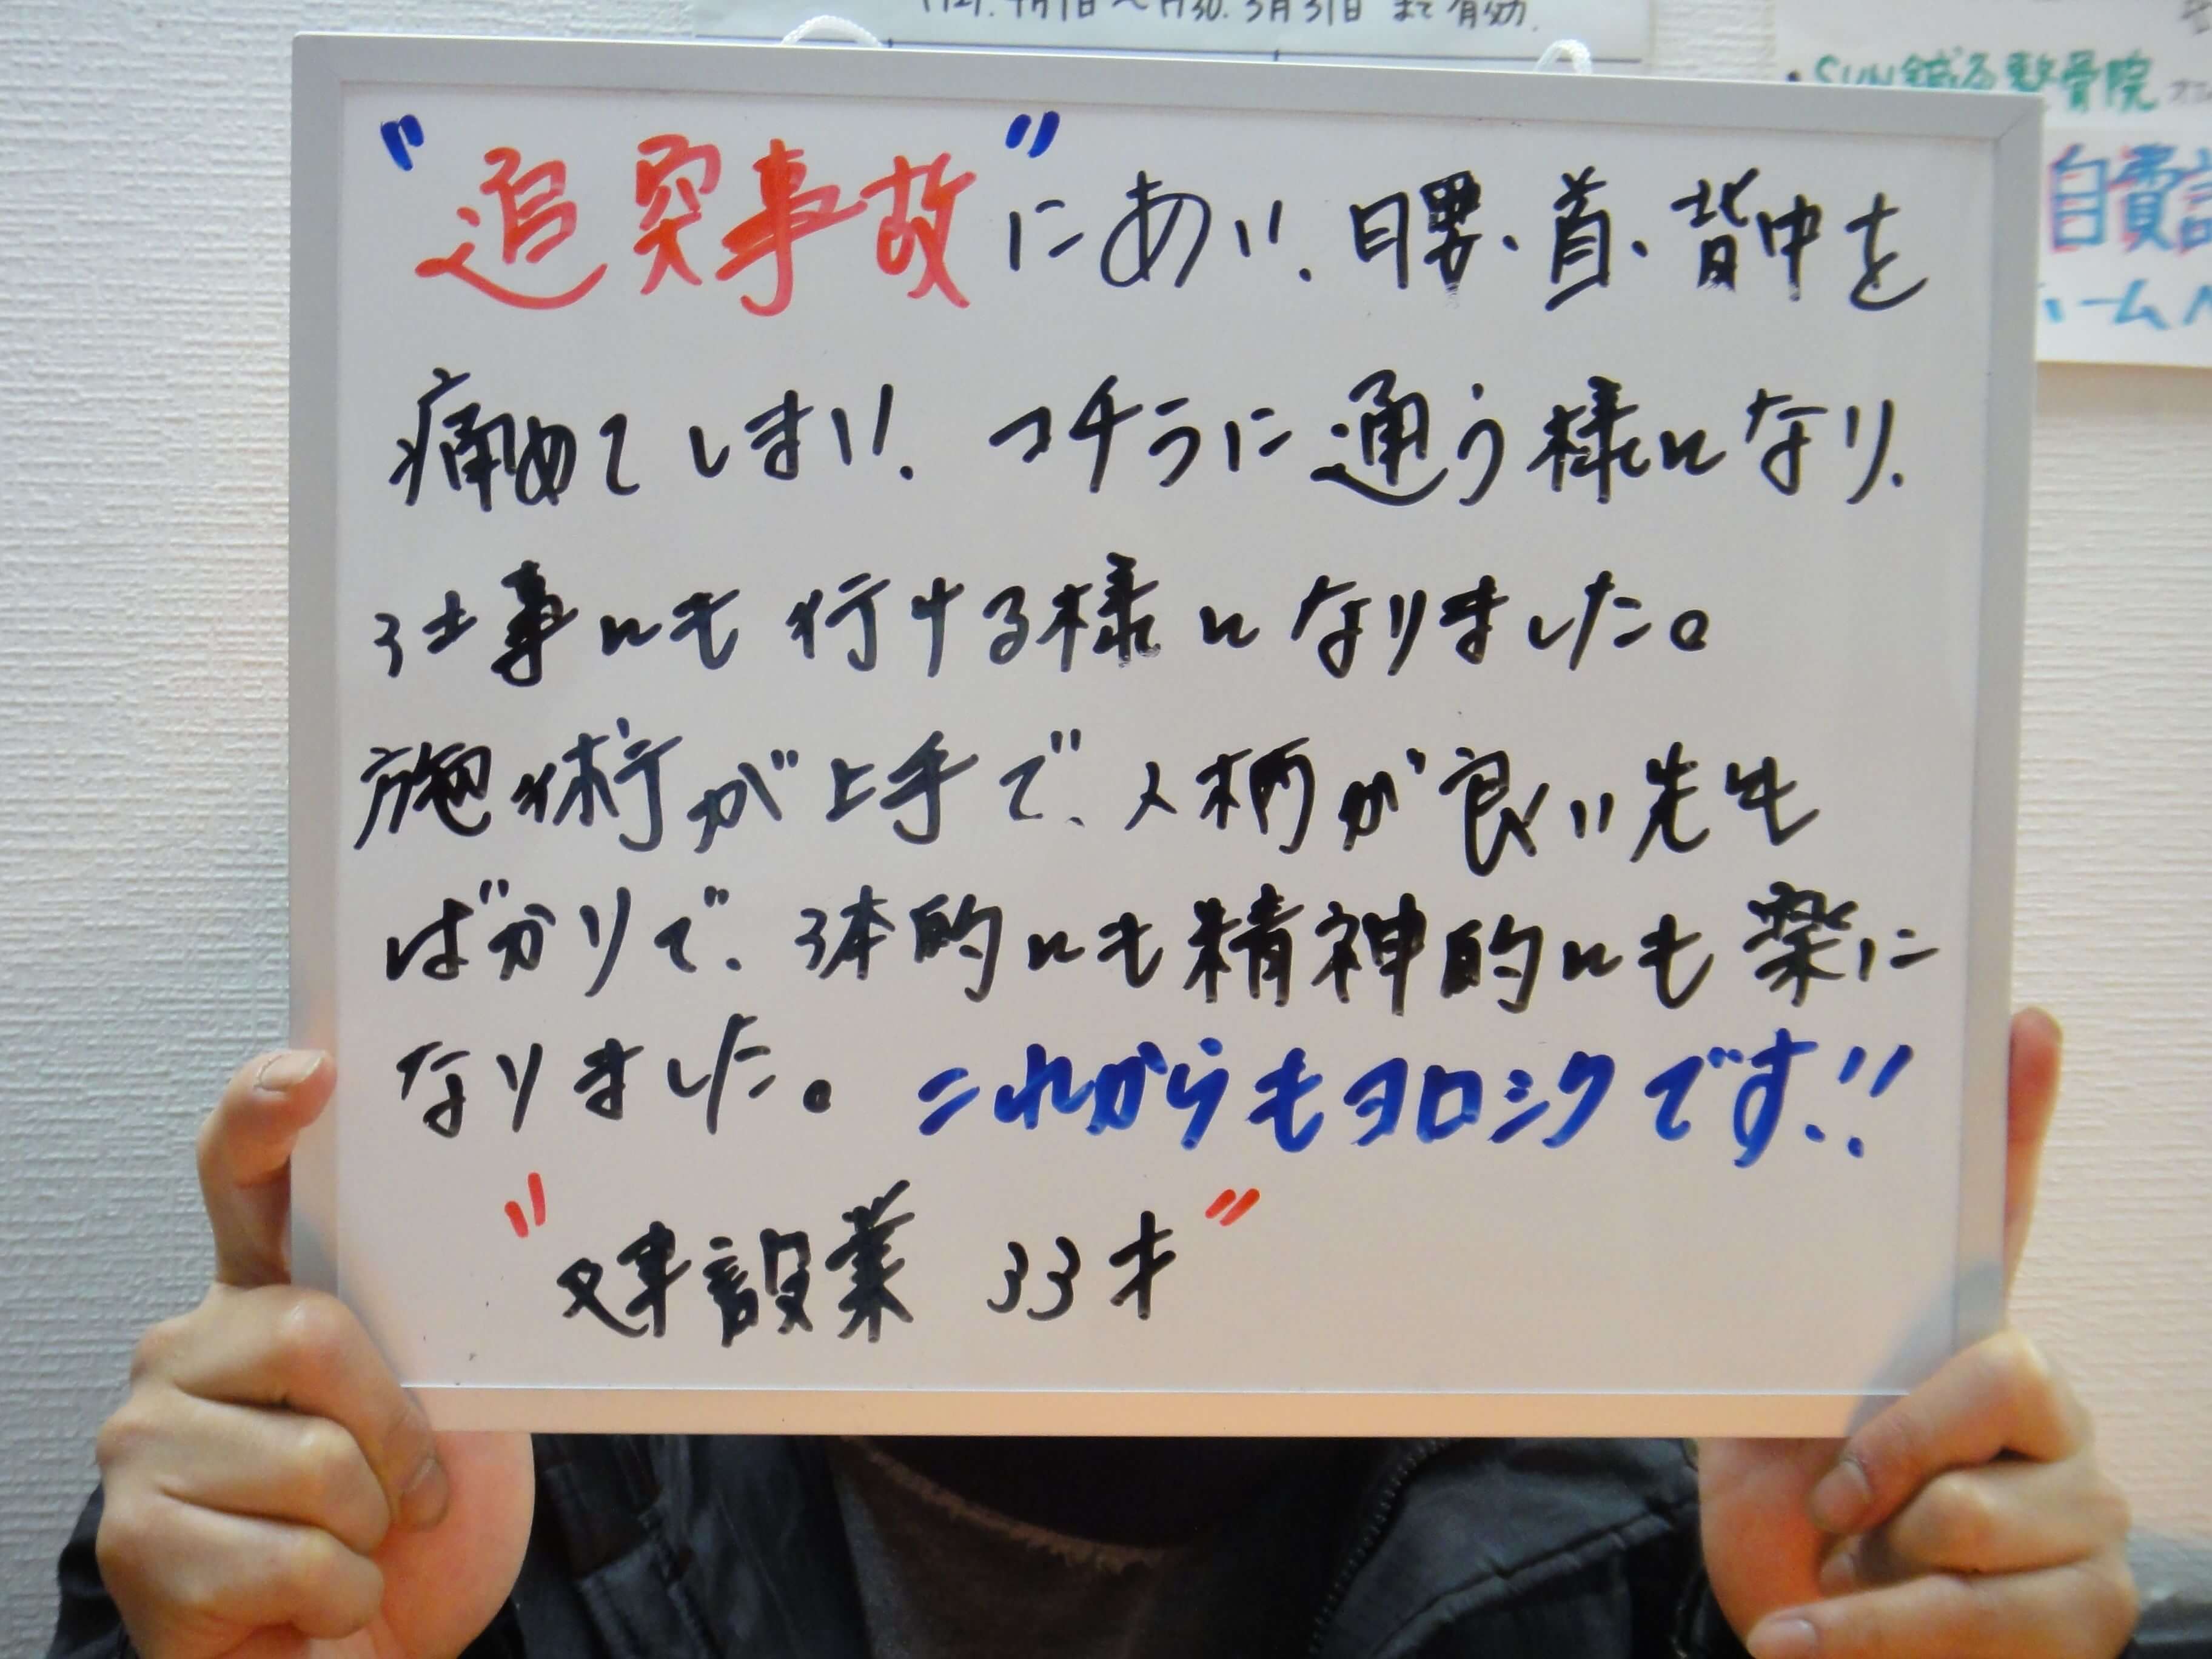 H29.4月1日～H30.3月31日まで有効.
SUN鍼灸整骨院
自費
ホーム
"追突事故"にあい、腰・首・背中を
痛めてしまい、コチラに通う様になり、
仕事にも行ける様になりました。
施術が上手で、人柄が良い先生
ばかりで、体的にも精神的にも楽に
なりました。これからもヨロシクです!!
"建設業 33才"